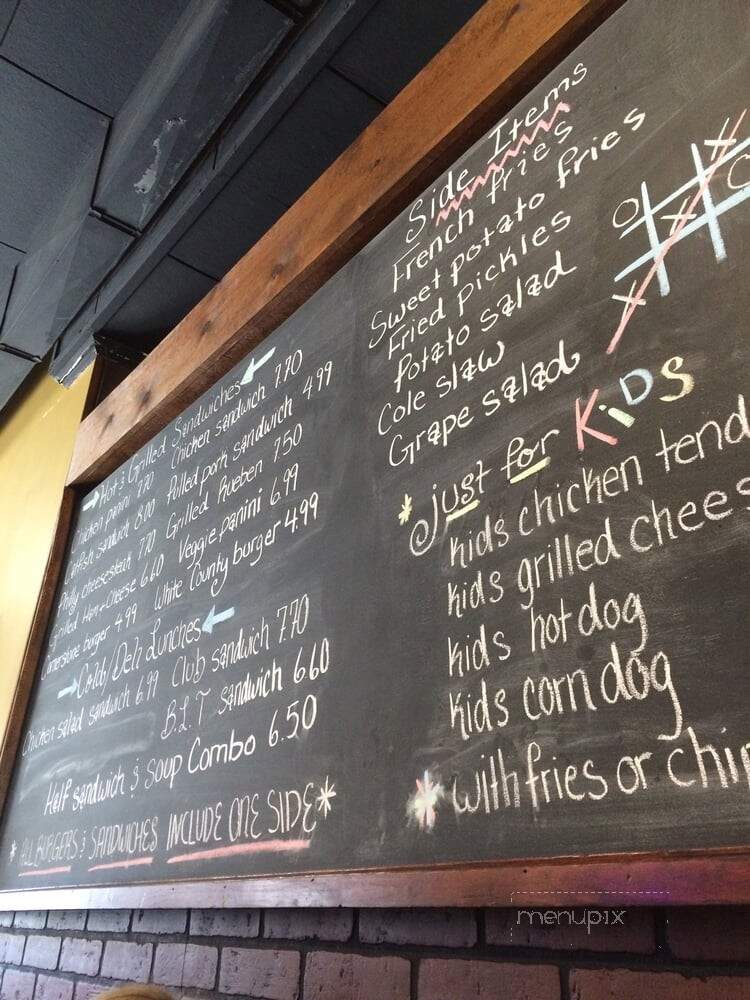 Hot & Grilled Sandwiches
Chicken panini 7.70 Chicken sandwich 7.70
Catfish sandwich 8.00 Pulled pork sandwich 4.99
Philly cheesesteak 7.70 Grilled Rueben 7.50
Grilled Ham & Cheese 6.60 Veggie panini 6.99
Cornerstone burger 4.99 White County burger 4.99
Cold/Deli Lunches
Chicken salad sandwich 6.99 Club sandwich 7.70
B.L.T sandwich 6.60
Half sandwich & soup Combo 6.50
*ALL BURGERS & SANDWICHES INCLUDE ONE SIDE*
Side Items
French fries
Sweet potato fries
Fried pickles
Potato salad
Cole slaw
Grape salad
*just for KiDS
kids chicken tend
kids grilled chees
kids hot dog
kids corn dog
*with fries or chip
menupix